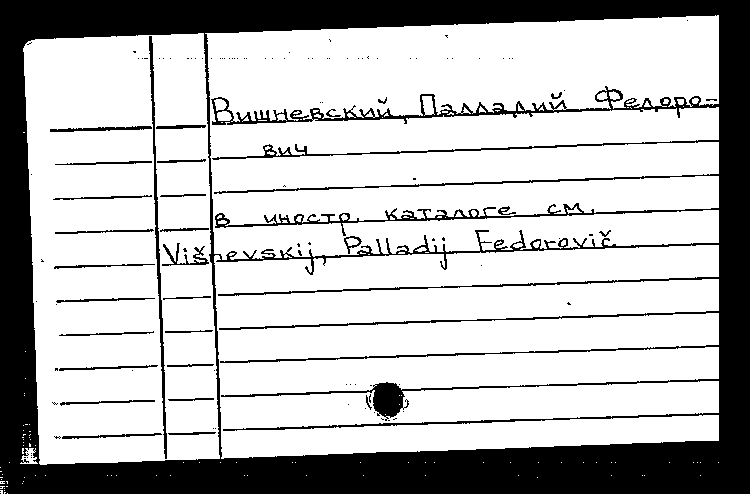 Вишневский, Палладий Федоро=
вич
в иностр. каталоге см.
Višnevskij, Palladij Fedorovič